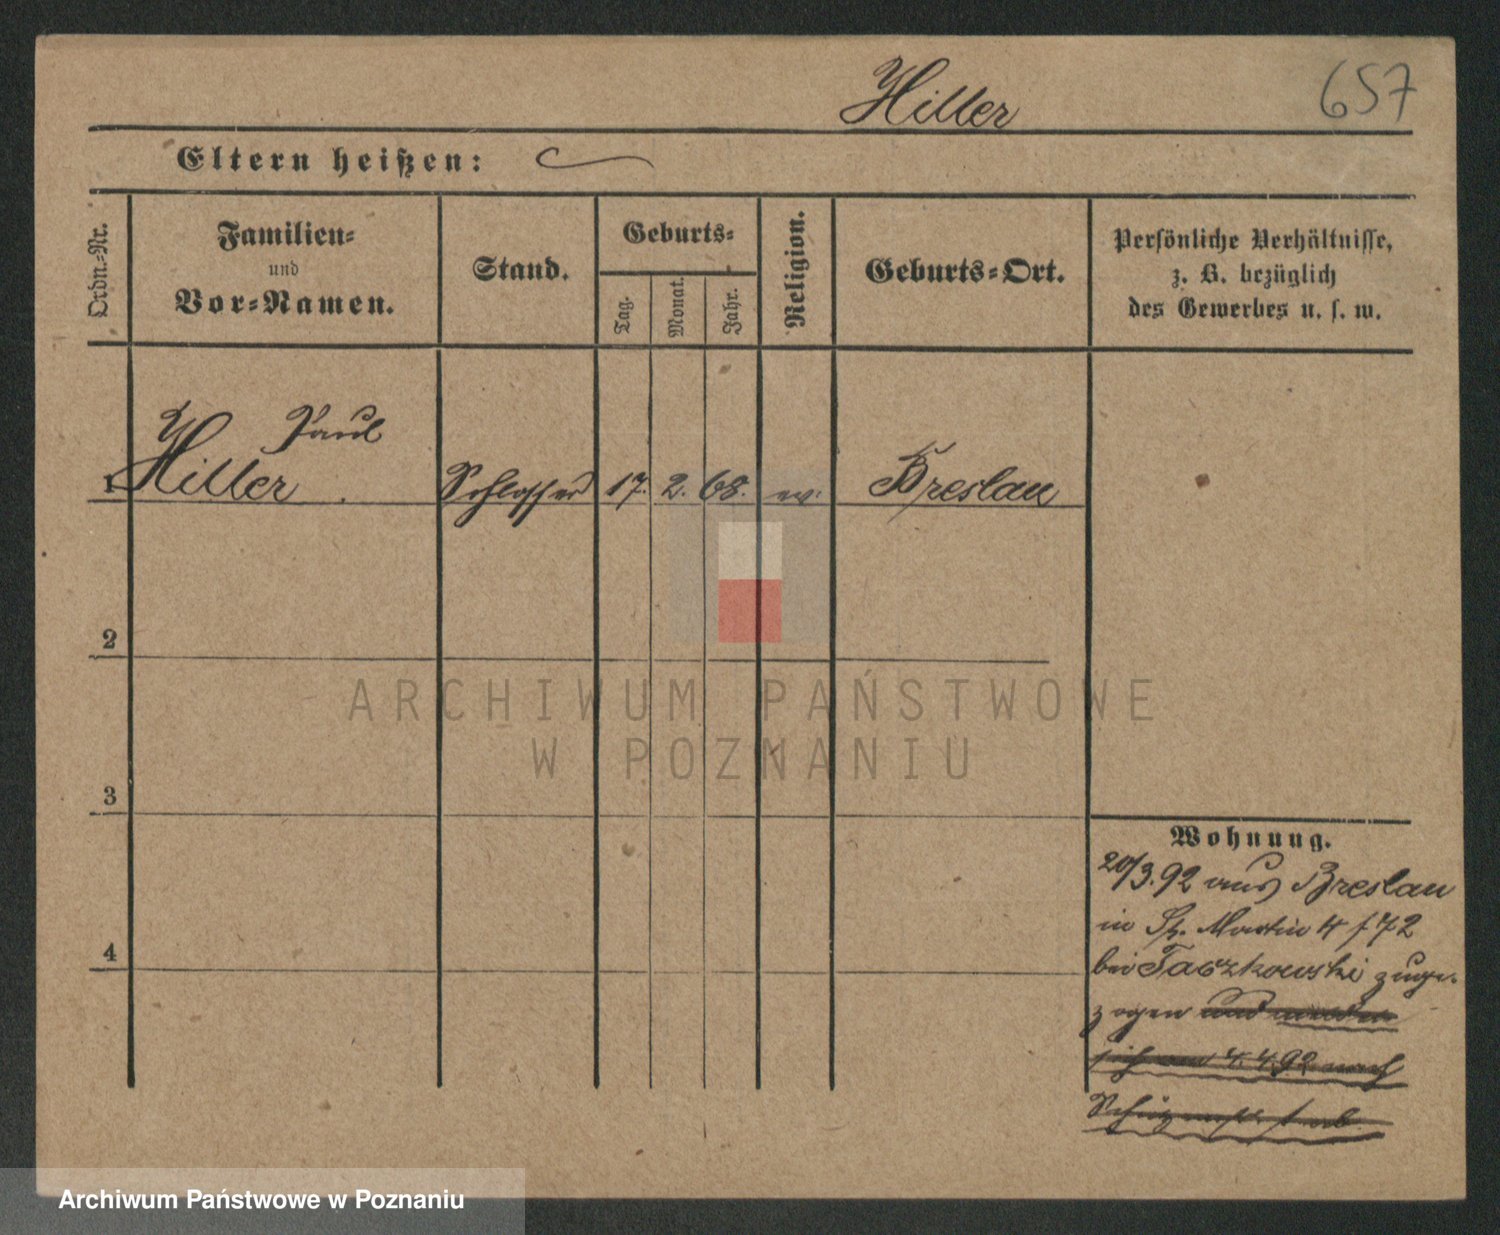 Hiller
657
Eltern heißen:
Ordn.-Nr.
Familien-
und
Vor-Namen.
Stand.
Geburts-
Tag.
Monat.
Jahr.
Religion.
Geburts-Ort.
Persönliche Verhältnisse,
z. B. bezüglich
des Gewerbes u. s. w.
Paul
1 Hiller Schlosser 17. 2. 68. ev. Breslau
2
3
4
ARCHIWUM PAŃSTWOWE
W POZNANIU
Wohnung.
20/3.92 aus Breslau
in St. Martin 4 f 72
bei Taszkowski zuge-
zogen und meldet
sich am 4.4.92 nach
Schützenstr. 1 ab.
Archiwum Państwowe w Poznaniu